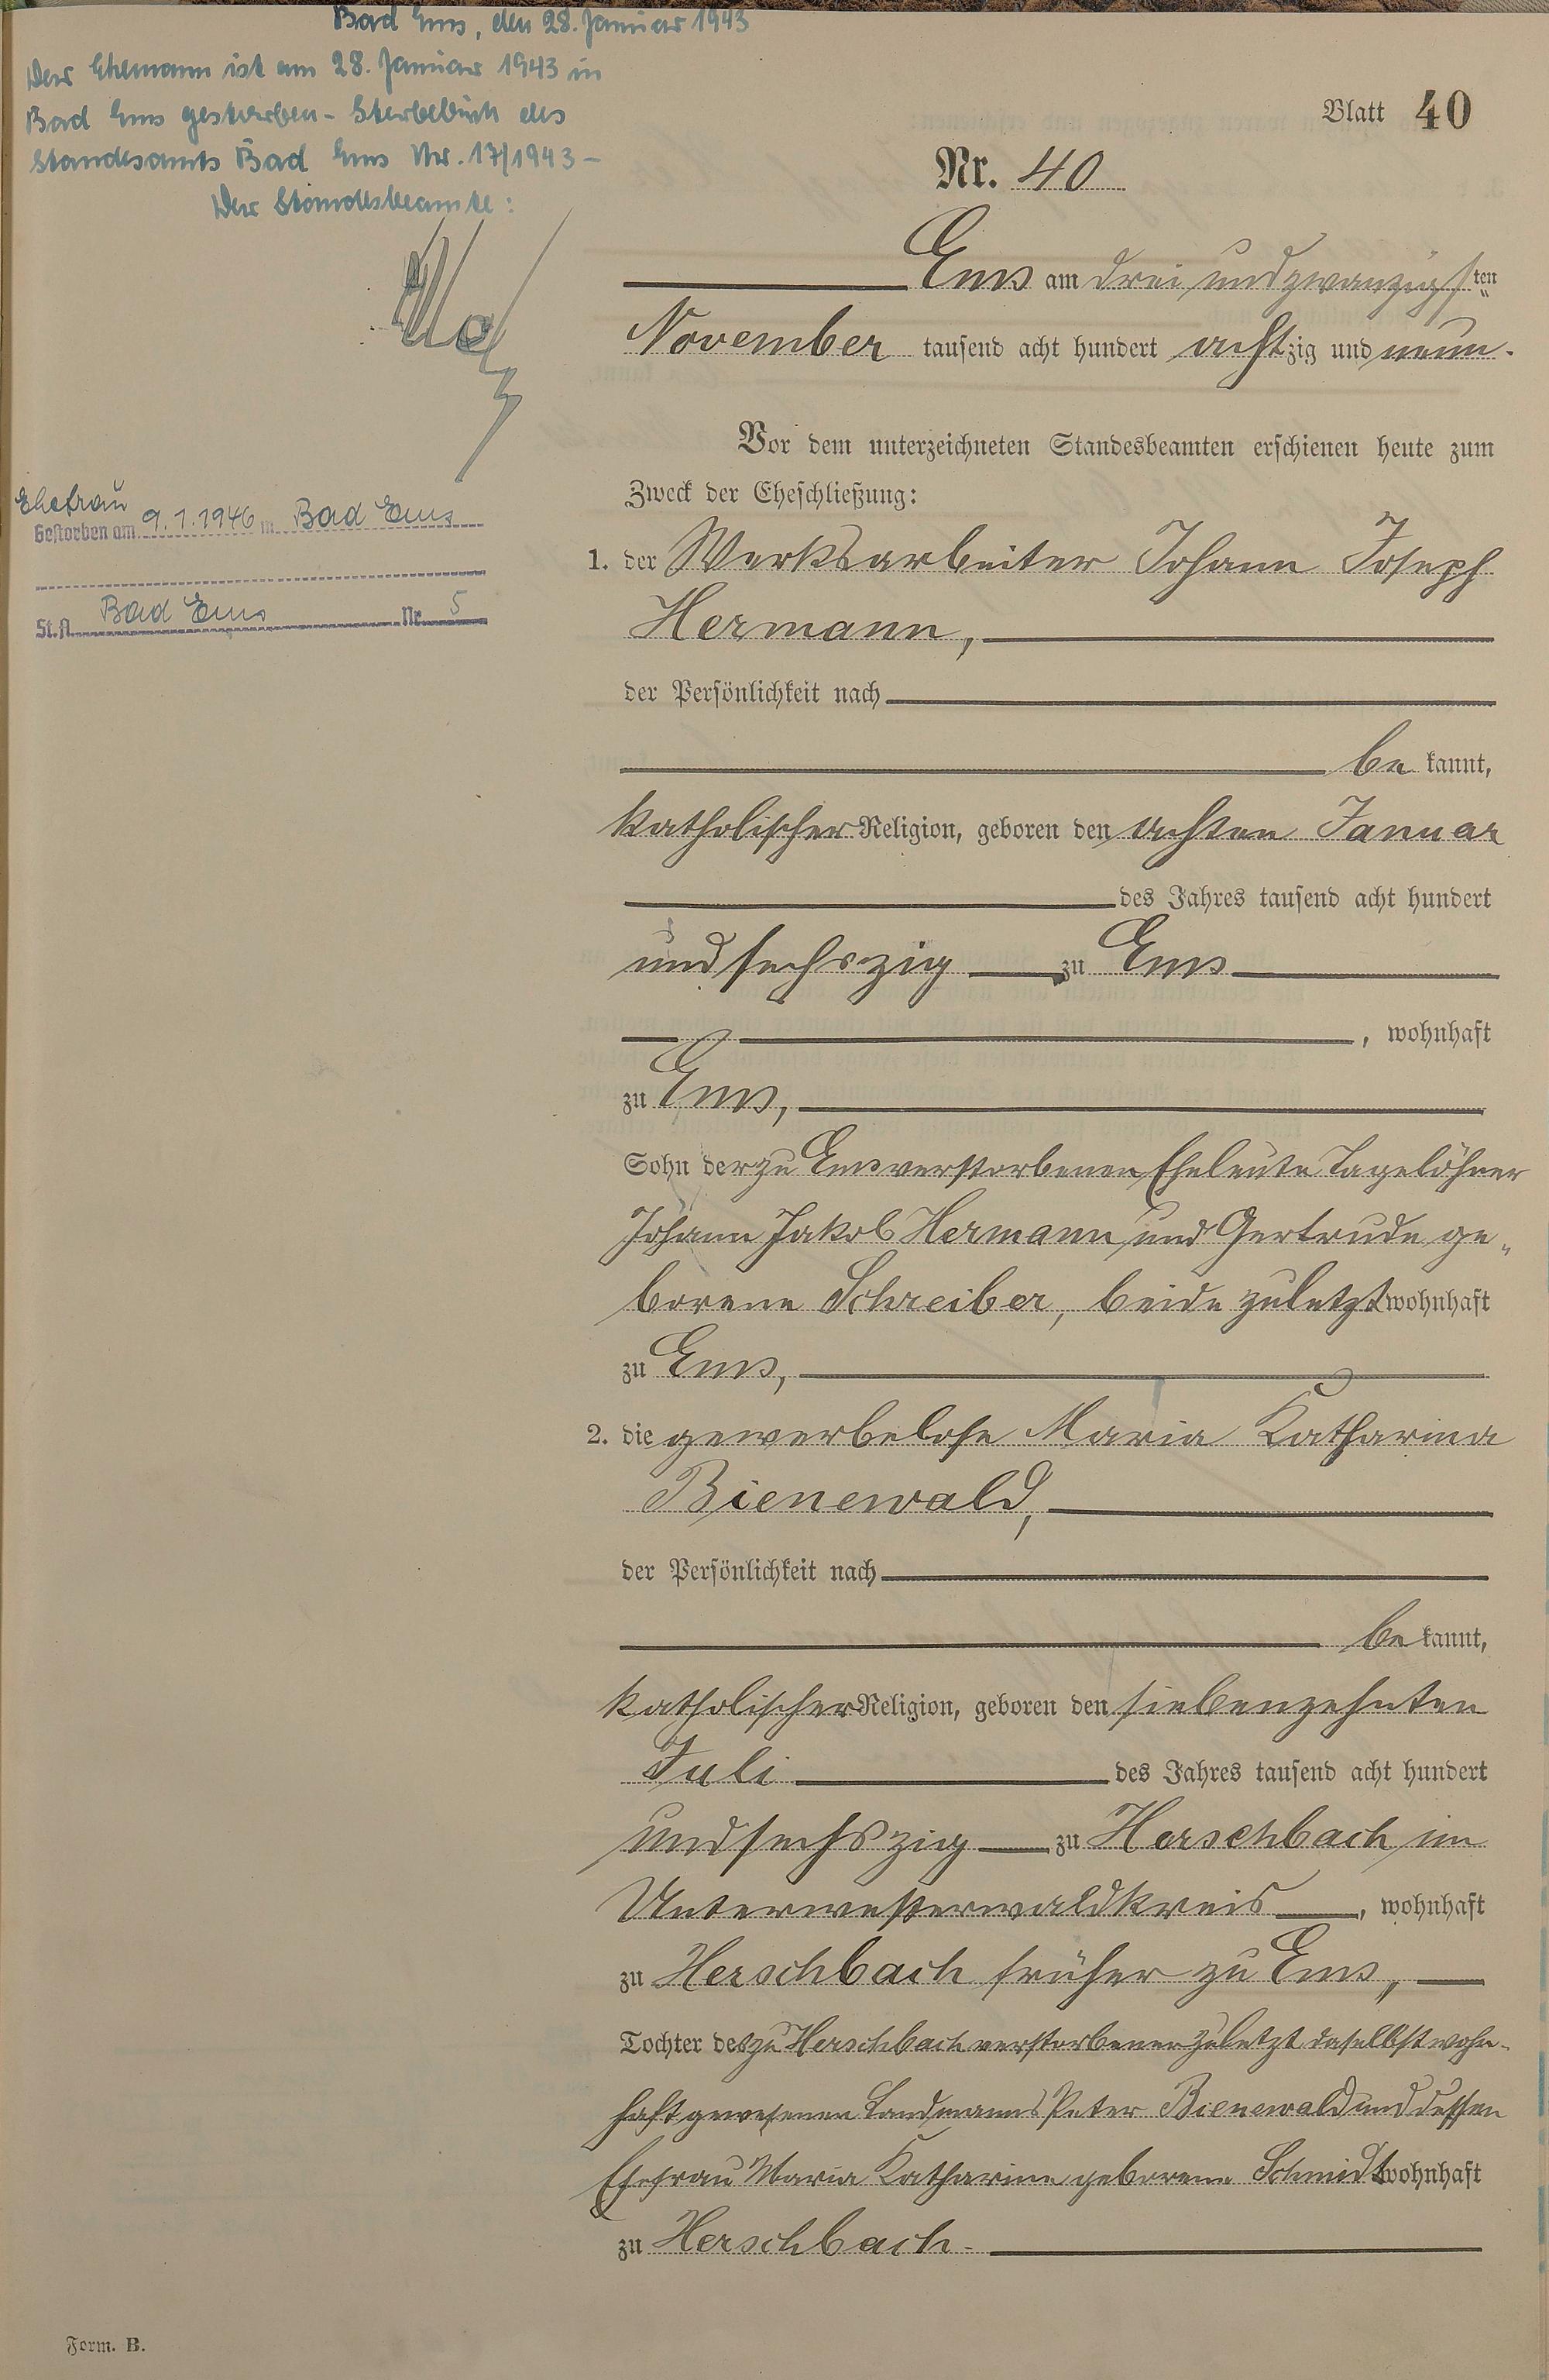 Bad Ems, den 28. Januar 1943
Der Ehemann ist am 28. Januar 1943 in
Bad Ems gestorben - Sterbebuch des
Standesamts Bad Ems Nr. 17/1943 -
Der Standesbeamte:
Ehefrau
Gestorben am 9.1.1946 in Bad Ems
St.A. Bad Ems Nr. 5
Blatt 40
Nr. 40
Ems am drei und zwanzigsten
November tausend acht hundert achtzig und neun.
Vor dem unterzeichneten Standesbeamten erschienen heute zum
Zweck der Eheschließung:
1. der Werksarbeiter Johann Joseph
Hermann,
der Persönlichkeit nach
be kannt,
katholischer Religion, geboren den achten Januar
des Jahres tausend acht hundert
und sechszig zu Ems
, wohnhaft
zu Ems,
Sohn der zu Ems verstorbenen Eheleute Tagelöhner
Johann Jakob Hermann und Gertrude ge-
borene Schreiber, beide zuletzt wohnhaft
zu Ems,
2. die gewerbelose Maria Katharina
Bienewald,
der Persönlichkeit nach
be kannt,
katholischer Religion, geboren den siebenzehnten
Juli des Jahres tausend acht hundert
und sechszig zu Herschbach im
Unterwesterwaldkreis, wohnhaft
zu Herschbach früher zu Ems,
Tochter des zu Herschbach verstorbenen zuletzt daselbst wohn-
haft gewesenen Landmanns Peter Bienewald und dessen
Ehefrau Maria Katharina geborene Schmidt wohnhaft
zu Herschbach.
Form. B.